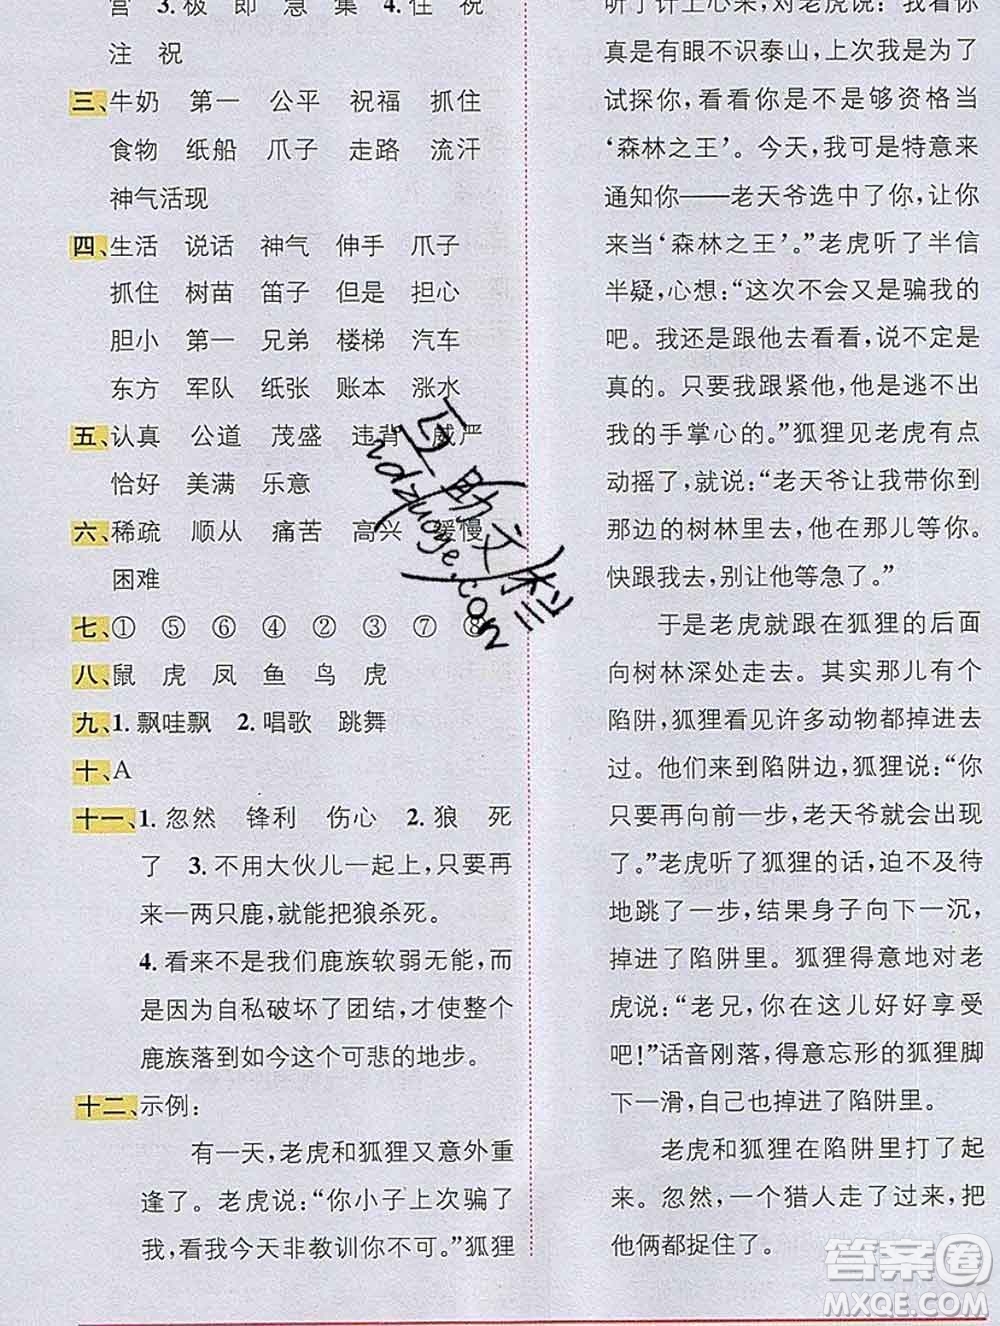 宫 3.极 即 急 集 4.住 祝
注 祝
三、牛奶 第一 公平 祝福 抓住
食物 纸船 爪子 走路 流汗
神气活现
四、生活 说话 神气 伸手 爪子
抓住 树苗 笛子 但是 担心
胆小 第一 兄弟 楼梯 汽车
东方 军队 纸张 账本 涨水
五、认真 公道 茂盛 违背 威严
恰好 美满 乐意
六、稀疏 顺从 痛苦 高兴 缓慢
困难
七、① ⑤ ⑥ ④ ② ③ ⑦ ⑧
八、鼠 虎 凤 鱼 鸟 虎
九、1.飘哇飘 2.唱歌 跳舞
十、A
十一、1.忽然 锋利 伤心 2.狼 死
了 3.不用大伙儿一起上,只要再
来一两只鹿,就能把狼杀死。
4.看来不是我们鹿族软弱无能,而
是因为自私破坏了团结,才使整个
鹿族落到如今这个可悲的地步。
十二、示例:
有一天,老虎和狐狸又意外重
逢了。老虎说:“你小子上次骗了
我,看我今天非教训你不可。”狐狸
听了计上心来,对老虎说:“我看你
真是有眼不识泰山,上次我是为了
试探你,看看你是不是够资格当
‘森林之王’。今天,我可是特意来
通知你——老天爷选中了你,让你
来当‘森林之王’。”老虎听了半信
半疑,心想:“这次不会又是骗我的
吧。我还是跟他去看看,说不定是
真的。只要我跟紧他,他是逃不出
我的手掌心的。”狐狸见老虎有点
动摇了,就说:“老天爷让我带你到
那边的树林里去,他在那儿等你。
快跟我去,别让他等急了。”
于是老虎就跟在狐狸的后面
向树林深处走去。其实那儿有个
陷阱,狐狸看见许多动物都掉进去
过。他们来到陷阱边,狐狸说:“你
只要再向前一步,老天爷就会出现
了。”老虎听了狐狸的话,迫不及待
地跳了一步,结果身子向下一沉,
掉进了陷阱里。狐狸得意地对老
虎说:“老兄,你在这儿好好享受
吧!”话音刚落,得意忘形的狐狸脚
下一滑,自己也掉进了陷阱里。
老虎和狐狸在陷阱里打了起
来。忽然,一个猎人走了过来,把
他俩都捉住了。
互助文档
hdzuoye.com
答案圈
MXQE.COM